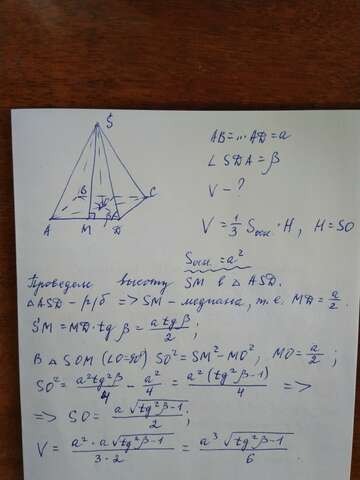 S
B
C
A
M
D
β
O
AB=...AD=a
∠SDA=β
V-?
V=1/3 Sосн.·H, H=SO
Sосн.=a²
Проведем высоту SM в △ASD.
△ASD-р/б => SM-медиана, т.е. MD=a/2.
SM=MD·tg β=a tg β/2;
В △SOM (∠O=90°) SO²=SM²-MO², MO=a/2;
SO²=a²tg²β/4-a²/4=a²(tg²β-1)/4 =>
=> SO=a√(tg²β-1)/2;
V=a²·a√(tg²β-1)/3·2=a³√(tg²β-1)/6.